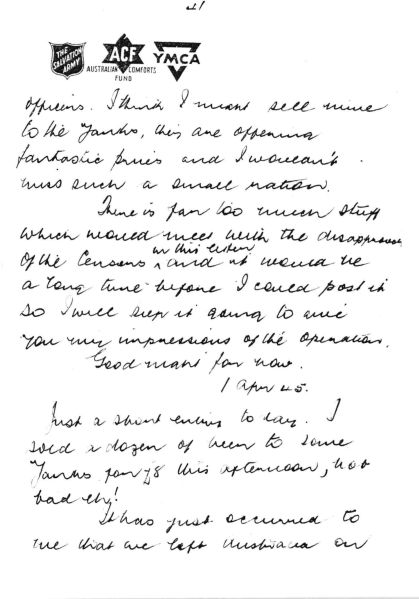 4/
THE SALVATION ARMY
ACF
AUSTRALIAN COMFORTS FUND
YMCA
officers. I think I might sell mine
to the Yanks, they are offering
fantastic prices and I wouldn't
miss such a small ration.
There is far too much stuff
which would meet with the disapproval
of the Censors in this letter and it would be
a long time before I could post it
so I will keep it going to give
you my impressions of the operation.
Good night for now.
1 Apr 45.
Just a short entry to day. I
sold a dozen of beer to some
Yanks for £8 this afternoon, not
bad eh!
It has just occurred to
me that we left Australia on